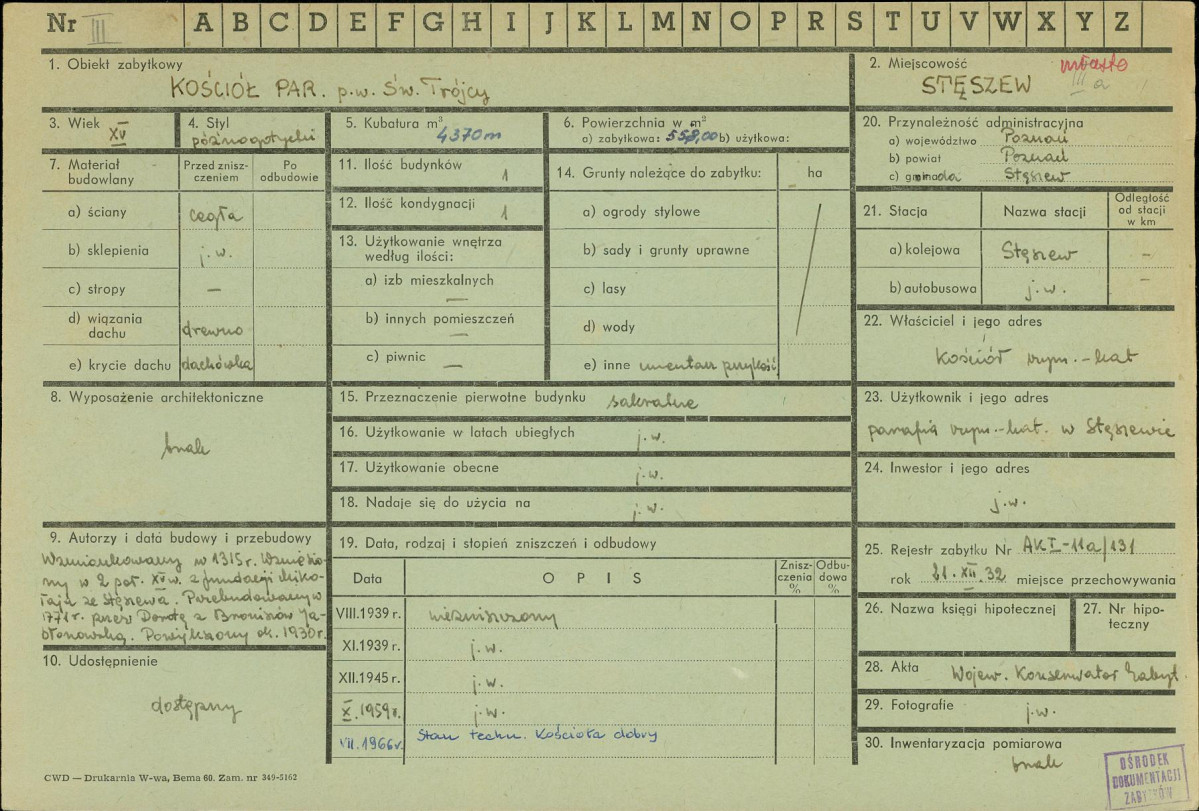 Nr III A B C D E F G H I J K L M N O P R S T U V W X Y Z
1. Obiekt zabytkowy
KOŚCIÓŁ PAR. p.w. Św. Trójcy
2. Miejscowość miasto
III a
STĘSZEW
3. Wiek XV
4. Styl późnogotycki
5. Kubatura m³ 4370 m
6. Powierzchnia w m²
a) zabytkowa: 558,00 b) użytkowa:
20. Przynależność administracyjna
a) województwo Poznań
b) powiat Poznań
c) gromada Stęszew
7. Materiał budowlany
Przed zniszczeniem
Po odbudowie
a) ściany cegła
b) sklepienia j.w.
c) stropy —
d) wiązania dachu drewno
e) krycie dachu dachówka
11. Ilość budynków 1
12. Ilość kondygnacji 1
13. Użytkowanie wnętrza
według ilości:
a) izb mieszkalnych —
b) innych pomieszczeń —
c) piwnic —
14. Grunty należące do zabytku: ha
a) ogrody stylowe
b) sady i grunty uprawne
c) lasy
d) wody
e) inne cmentarz przykość.
21. Stacja
Nazwa stacji
Odległość
od stacji
w km
a) kolejowa Stęszew —
b) autobusowa j.w. —
22. Właściciel i jego adres
Kościół rzym.-kat
8. Wyposażenie architektoniczne
brak
15. Przeznaczenie pierwotne budynku sakralne
16. Użytkowanie w latach ubiegłych j.w.
17. Użytkowanie obecne j.w.
18. Nadaje się do użycia na j.w.
23. Użytkownik i jego adres
parafia rzym.-kat. w Stęszewie
24. Inwestor i jego adres
j.w.
9. Autorzy i data budowy i przebudowy
Wzmiankowany w 1315 r. Wzniesio-
ny w 2 poł. XV w. z fundacji Miko-
łaja ze Stęszewa. Przebudowany w
1771 r. przez Dorotę z Broniszów Ja-
błonowską. Powiększony ok. 1930 r.
10. Udostępnienie
dostępny
19. Data, rodzaj i stopień zniszczeń i odbudowy
Data
OPIS
Zniszczenia %
Odbudowa %
VIII.1939 r. niezniszczony
XI.1939 r. j.w.
XII.1945 r. j.w.
X.1959 r. j.w.
VII.1966 r. Stan techn. Kościoła dobry
25. Rejestr zabytku Nr AKI-11a/131
rok 21.XII.32 miejsce przechowywania
26. Nazwa księgi hipotecznej
27. Nr hipoteczny
28. Akta Wojew. Konserwator Zabyt.
29. Fotografie j.w.
30. Inwentaryzacja pomiarowa
brak
CWD — Drukarnia W-wa, Bema 60. Zam. nr 349-5162
OŚRODEK
DOKUMENTACJI
ZABYTKÓW